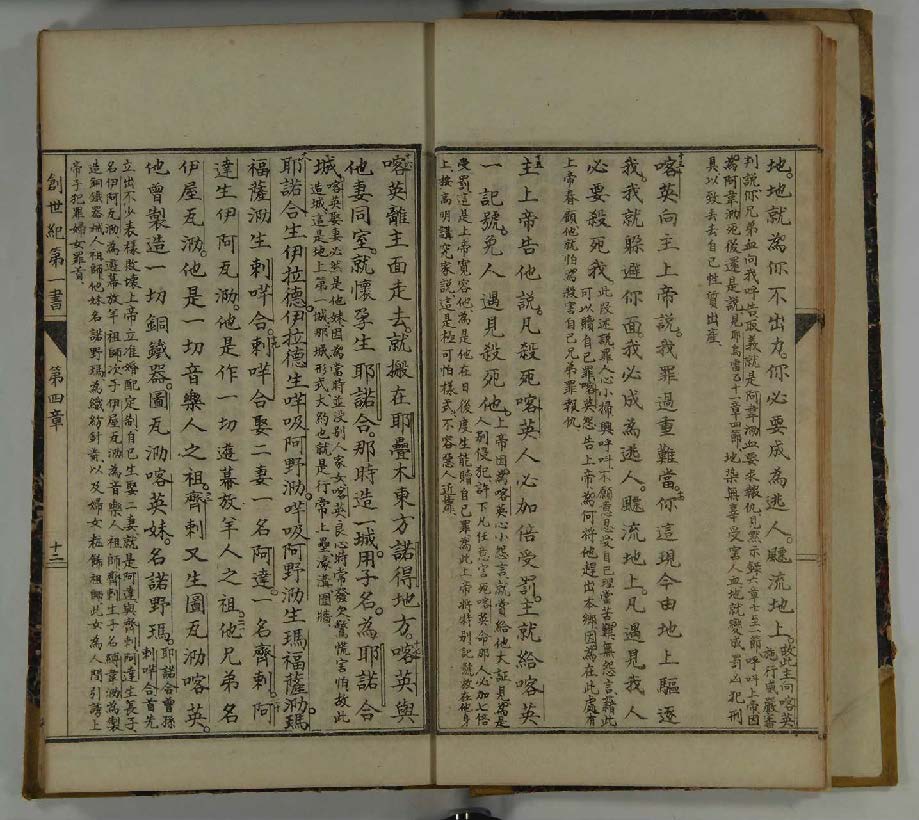 地。地就為你不出力。你必要成為逃人。飃流地上。故此主向喀英施行威嚴審
判説你兄弟血向我呼告取義就是阿韋泐血要求報仇見黙示錄六章七至一節呼呌上帝因
為阿韋泐死後還是説見耶烏雷乙十一章四節地染無辜受害人血地就變成罰凶犯刑
具以致去去自已性質出產
喀英向主上帝説。我罪過重難當。你這現今由地上驅逐
我。我就躱避你面我必成為逃人。飃流地上。凡遇見我人
必要殺死我。此段述説罪人心小掃興呼呌不願意忍受自己理當苦難無怨言藉此
可以贖自己罪喀英怨告上帝為何將他趕出本鄉因為在此處有
上帝眷顧他就怕為殺害自己兄弟罪報仇
主上帝告他説。凡殺死喀英人必加倍受罰。主就給喀英
一記號。免人遇見殺死他。上帝因為喀英心小怨言就賞給他大証見為是
人別侵犯許下凡任意害死喀英命那人必加七倍
受罰這是上帝寬容他為是他在日後度生能贖自己罪為此上帝將特別記號放在他身
上。按高明講究家説這是極可怕樣式不容惡人近靠
喀英離主面走去。就搬在耶疊木東方諾得地方。喀英與
他妻同室。就懷孕生耶諾合。那時造一城。用子名。為耶諾合
城。喀英娶妻必然是他妹因為當時並没别人家女喀英良心時常發欠驚慌害怕故此
造城這是地上第一城。那城形式大約也就是行常上壘濠溝圍牆
耶諾合生伊拉德伊拉德生咩吸阿野泐。咩吸阿野泐生瑪福薩泐瑪
福薩泐生剌咩合。剌咩合娶二妻一名阿達。一名齊剌。阿
達生伊阿瓦泐他是作一切遊幕放羊人之祖。他兄弟名
伊屋瓦泐。他是一切音樂人之祖。齊剌又生圖瓦泐喀英。
他曾製造一切銅鐵器。圖瓦泐喀英妹。名諾野瑪。耶諾合曹孫
剌咩合首先
立出不少表樣敗壞上帝立准婚配定制自已生娶二妻就是阿達與齊剌阿達生長子
名伊阿瓦泐為遊幕放羊祖師次子伊屋瓦泐為音樂人祖師齊剌生子名韋泐為製
造銅鐵器械人祖師他妹名諾野瑪為織紡針黹以及婦女粧飾祖師此女為人間引誘上
帝子犯罪婦女罪首
創世紀第一書
第四章
十二